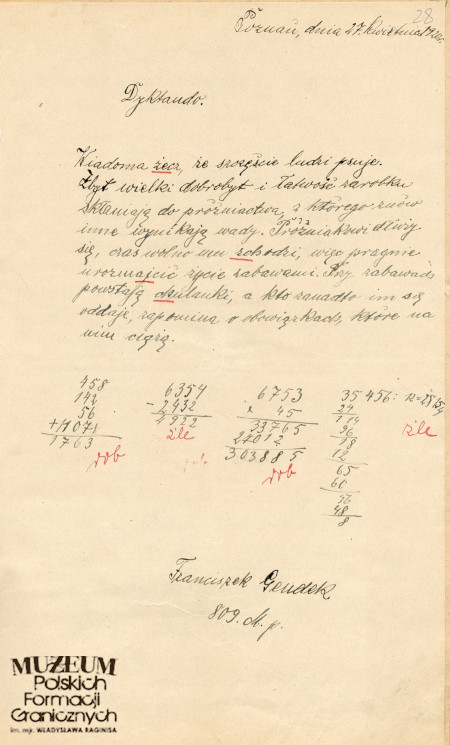 28
Poznań, dnia 27. kwietnia 192
Dyktando.
Wiadoma żecz, że szczęście ludzi psuje.
Zbyt wielki dobrobyt i łatwość zarobku
skłaniają do próżniactwa, z którego znów
inne wynikają wady. Próżniakowi dłuży
się, czas wolno mu zchodzi, więc pragnie
urozmajcić życie zabawami. Przy zabawach
powstają chulanki, a kto zanadto im się
oddaje, zapomina o obowiązkach, które na
nim ciążą.
458
142
56
+ 1071
1763
dob
6354
- 2432
4922
źle
6753
× 45
33765
27012
303885
dob
35456 : 12 =
24
114
96
18
12
65
60
56
48
8
źle
Franciszek Gendek
809. M. p.
MUZEUM
Polskich
Formacji
Granicznych
im. mjr. WŁADYSŁAWA RAGINISA